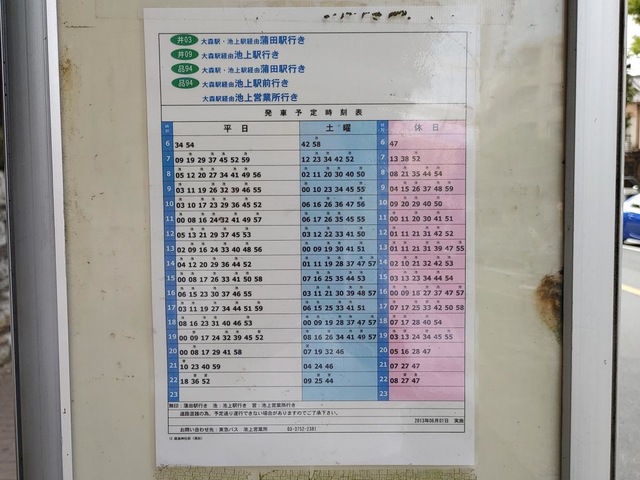 井03 大森駅・池上駅経由蒲田駅行き
井09 大森駅経由池上駅行き
品94 大森駅・池上駅経由蒲田駅行き
品94 大森駅経由池上駅前行き
大森駅経由池上営業所行き
発車予定時刻表
平日 土曜 休日
6 34 54 42 58 6 47
7 09 19 29 37 45 52 59 12 23 34 42 52 7 13 38 52
8 05 12 20 27 34 41 49 56 02 11 20 30 40 50 8 08 21 35 44 54
9 03 11 19 26 32 39 46 55 00 10 23 34 45 55 9 04 15 26 37 48 59
10 03 10 17 23 29 36 45 52 06 16 26 36 47 56 10 09 20 29 40 50
11 00 08 16 24 32 41 49 57 06 17 26 35 45 55 11 00 11 20 30 41 51
12 05 13 21 29 37 45 53 03 12 22 33 41 50 12 01 11 21 31 42 52
13 02 09 16 24 33 40 48 56 00 09 19 30 41 51 13 01 11 21 31 39 47 55
14 04 12 20 29 36 44 52 01 11 19 28 37 47 57 14 02 10 21 32 42 53
15 00 08 17 26 33 41 50 58 07 16 25 35 44 53 15 03 13 23 34 44 54
16 06 15 23 30 37 46 55 03 11 21 30 39 48 57 16 00 09 18 27 37 47 57
17 03 11 19 27 34 44 51 59 06 15 25 33 41 51 17 07 17 25 33 42 50 58
18 08 16 23 31 40 46 53 00 09 19 28 37 47 57 18 07 17 28 40 54
19 00 09 17 24 32 39 45 52 08 16 26 34 41 49 57 19 03 13 24 34 45 55
20 00 08 17 29 41 58 07 19 32 46 20 05 16 28 47
21 10 23 40 59 04 24 46 21 07 27 47
22 18 36 52 09 25 44 22 08 27 47
23 23
無印：蒲田駅行き 池：池上駅行き 営：池上営業所行き
道路混雑の為、予定通り運行できない場合がありますのでご了承下さい。
2013年06月01日 実施
お問い合わせ先：東急バス 池上営業所 03-3752-2381